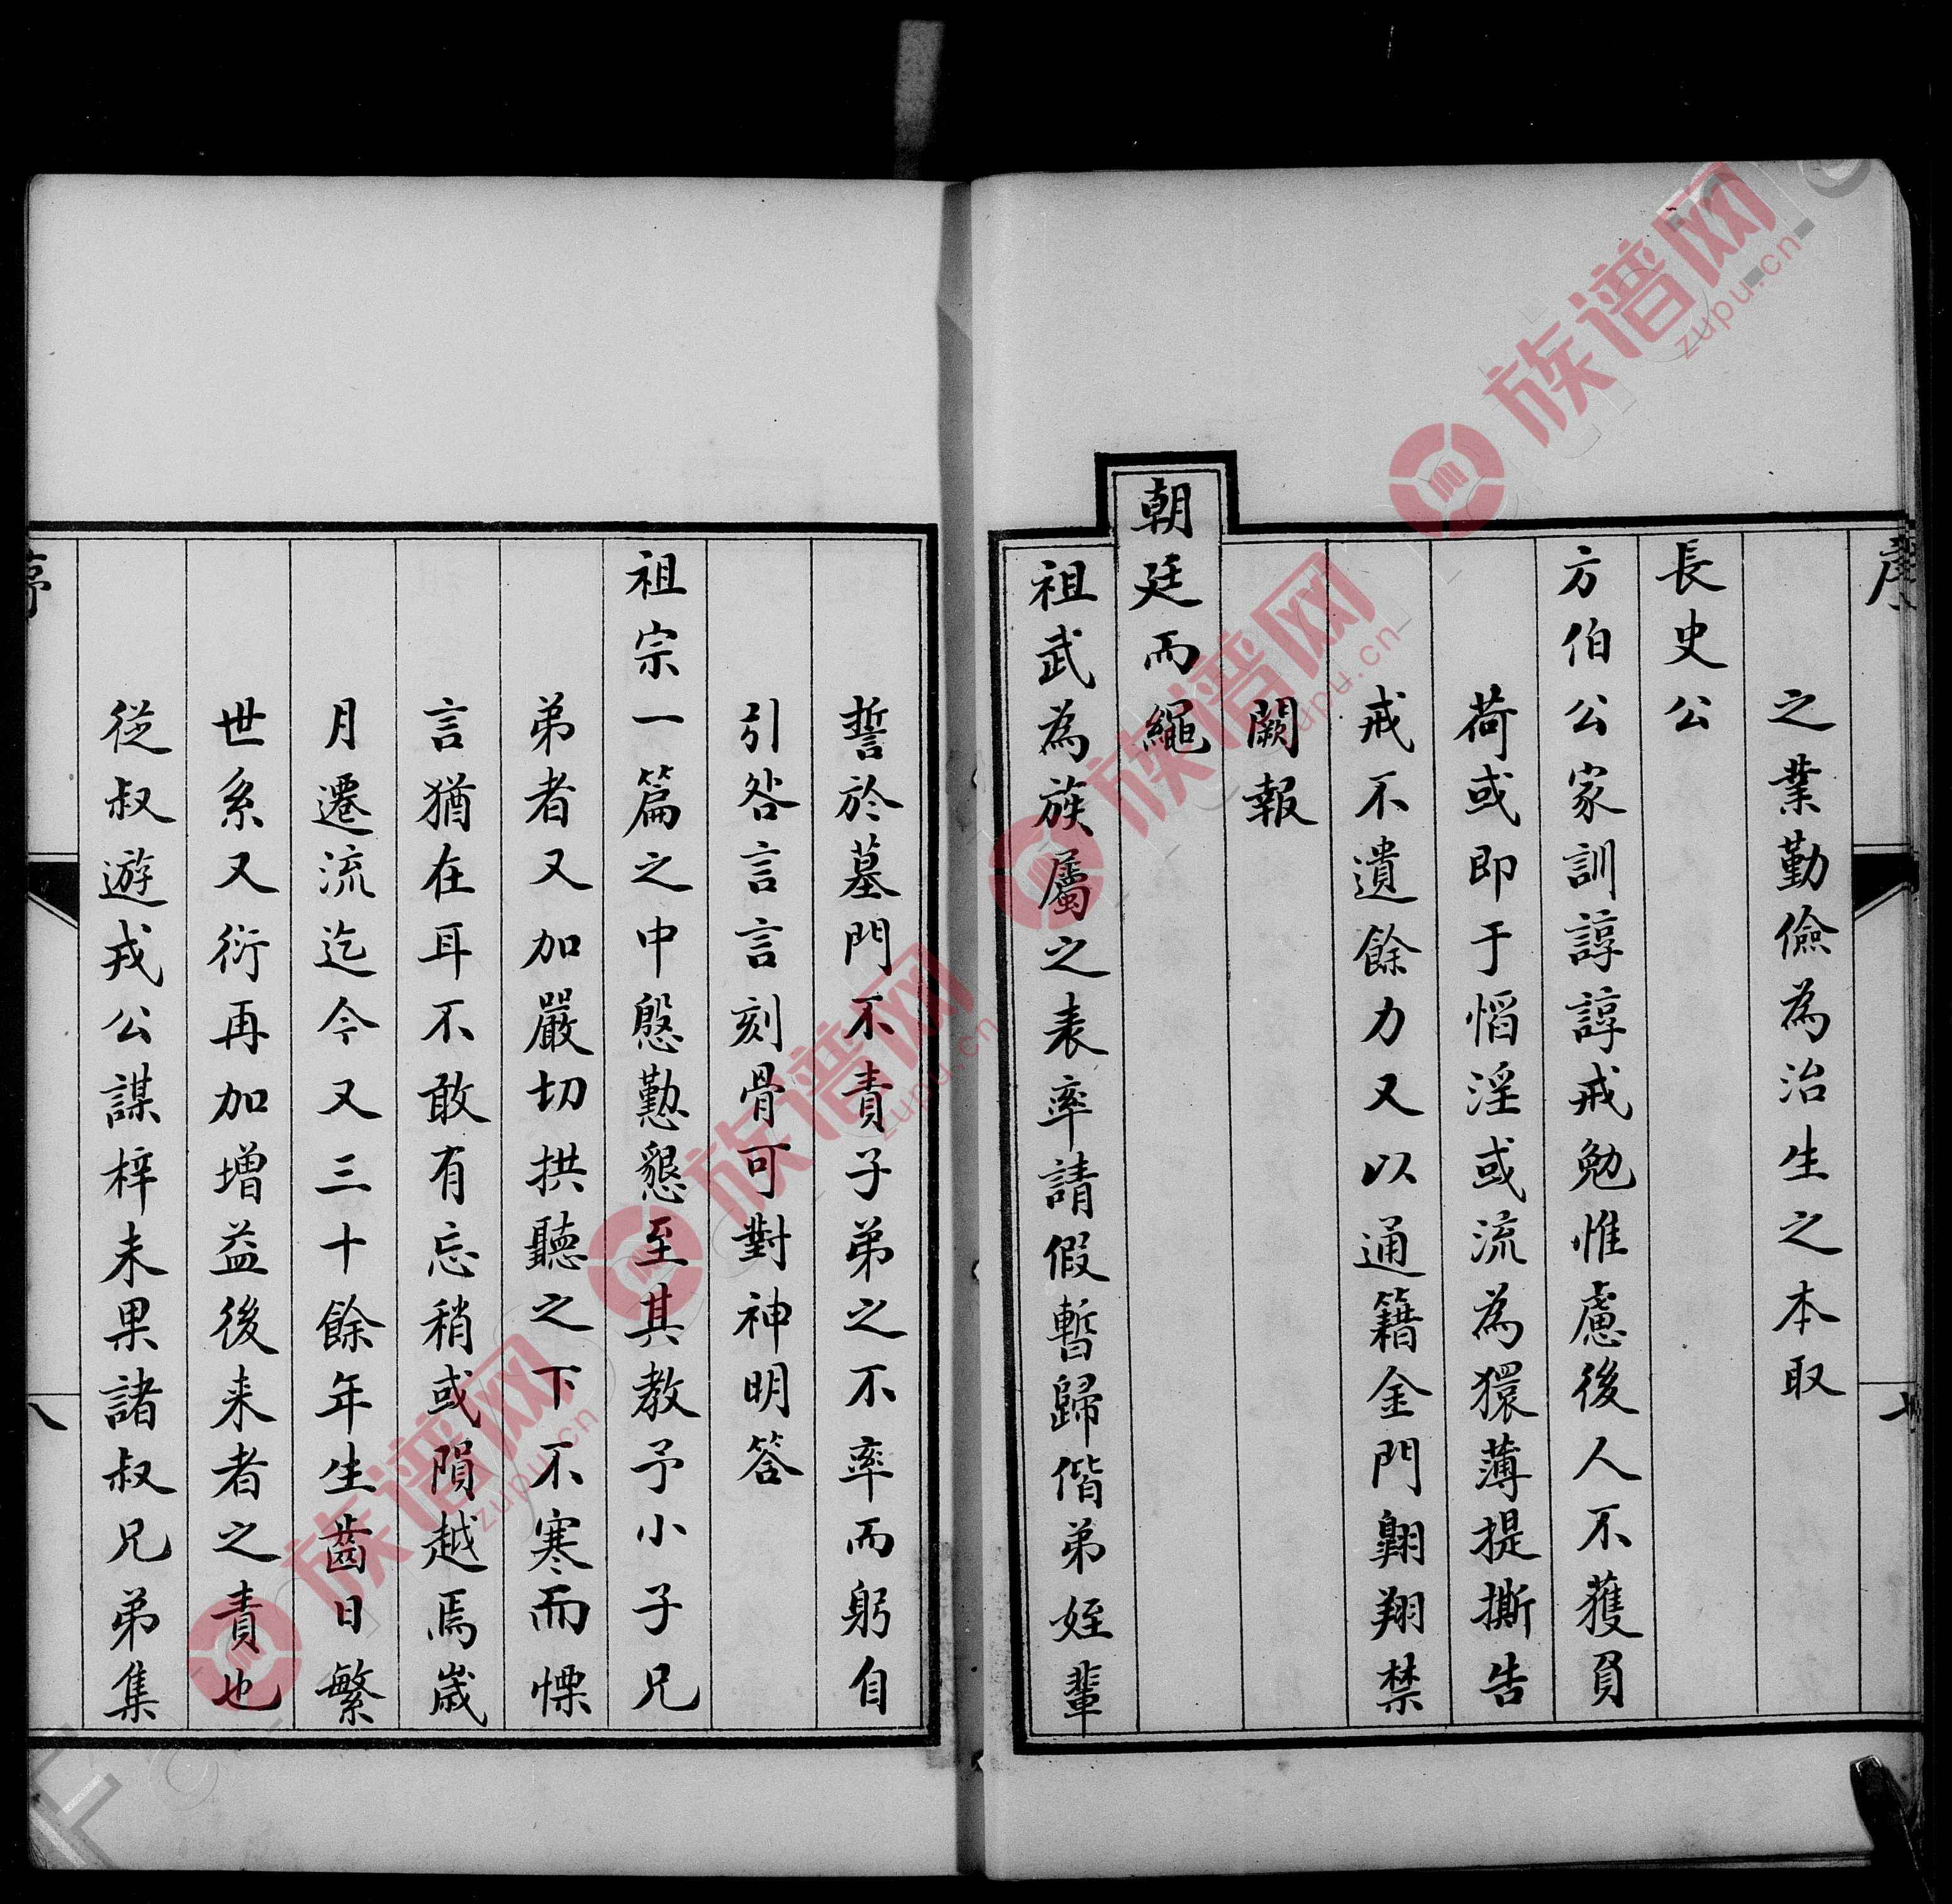 序
七
之業勤儉為治生之本取
長史公
方伯公家訓諄諄戒勉惟慮後人不獲負
荷或即于慆淫或流為獧薄提撕告
戒不遺餘力又以通籍金門翺翔禁
闕報
朝廷而繩
祖武為族屬之表率請假暫歸偕弟姪輩
誓於墓門不責子弟之不率而躬自
引咎言言刻骨可對神明答
祖宗一篇之中慇懃懇至其教予小子兄
弟者又加嚴切拱聽之下不寒而慄
言猶在耳不敢有忘稍或隕越焉歲
月遷流迄今又三十餘年生齒日繁
世系又衍再加增益後来者之責也
從叔遊戎公謀梓未果諸叔兄弟集
序
八
族谱网
zupu.cn
族谱网
zupu.cn
族谱网
zupu.cn
族谱网
zupu.cn